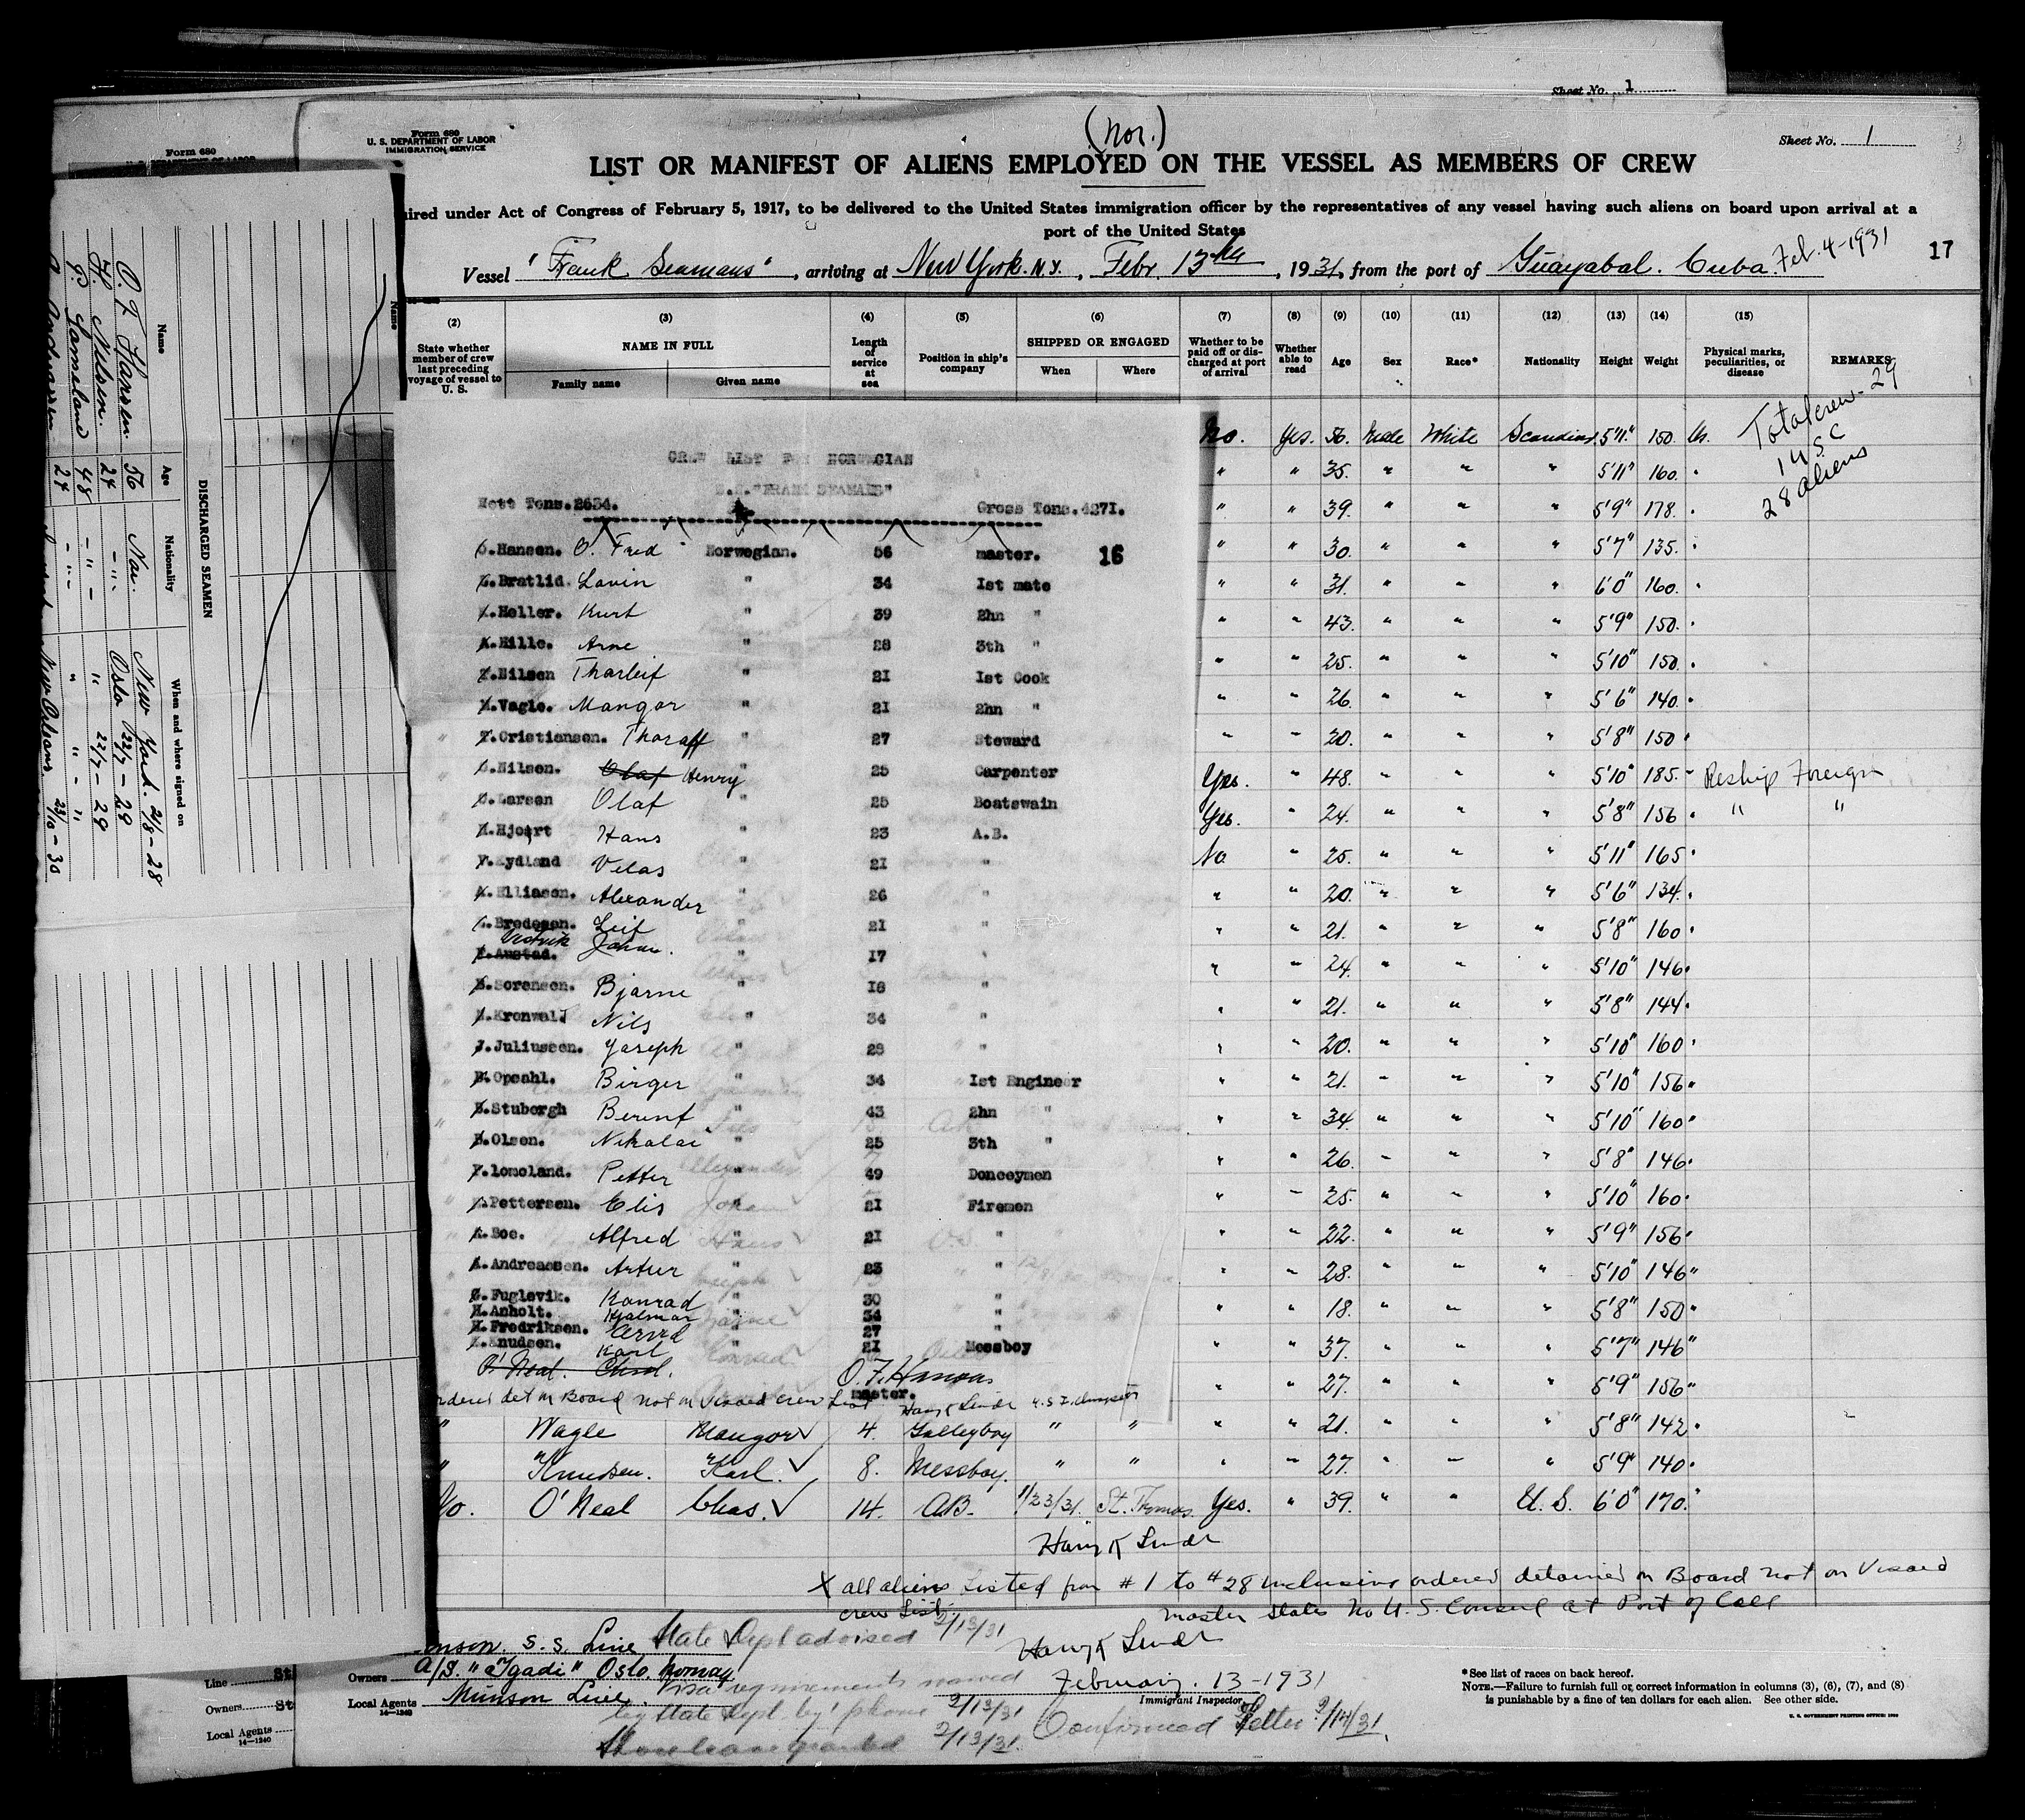 Sheet No. 1
Form 680
U. S. DEPARTMENT OF LABOR
IMMIGRATION SERVICE
(Nor.)
Sheet No. 1
LIST OR MANIFEST OF ALIENS EMPLOYED ON THE VESSEL AS MEMBERS OF CREW
uired under Act of Congress of February 5, 1917, to be delivered to the United States immigration officer by the representatives of any vessel having such aliens on board upon arrival at a
port of the United States
Vessel "Frank Seamans", arriving at New York. N.Y., Febr. 13th, 1931, from the port of Guayabal. Cuba. Feb. 4-1931
17
(2) (3) (4) (5) (6) (7) (8) (9) (10) (11) (12) (13) (14) (15)
State whether member of crew last preceding voyage of vessel to U. S.
NAME IN FULL
Family name
Given name
Length of service at sea
Position in ship's company
SHIPPED OR ENGAGED
When
Where
Whether to be paid off or discharged at port of arrival
Whether able to read
Age
Sex
Race*
Nationality
Height
Weight
Physical marks, peculiarities, or disease
REMARKS
Total crew - 29
1 U S C
28 aliens
No. Yes. 56. Male White Scandinav. 5'11" 150.
" " 35. " " " 5'11" 160.
" " 39. " " " 5'9" 178.
" " 30. " " " 5'7" 135.
" " 31. " " " 6'0" 160.
" " 43. " " " 5'9" 150.
" " 25. " " " 5'10" 150.
" " 26. " " " 5'6" 140.
" " 20. " " " 5'8" 150
Yes. " 48. " " " 5'10" 185. Reship Foreign
Yes. " 24. " " " 5'8" 156 " "
No " 25. " " " 5'11" 165
" " 20. " " " 5'6" 134.
" " 21. " " " 5'8" 160
" " 24. " " " 5'10" 146
" " 21. " " " 5'8" 144
" " 20. " " " 5'10" 160
" " 21. " " " 5'10" 156
" " 34. " " " 5'10" 160
" " 26. " " " 5'8" 146
" " 25. " " " 5'10" 160
" " 22. " " " 5'9" 156
" " 28. " " " 5'10" 146
" " 18. " " " 5'8" 150
" " 37. " " " 5'7" 146
" " 27. " " " 5'9" 156
" Wagle Mangor 4. Galleyboy " " " " 21. " " " 5'8" 142
" Knudsen. Karl. 8. Messboy. " " " " 27. " " " 5'9" 140.
No. O'Neal Chas. 14. A.B. 1/23/31. St. Thomas. Yes. " 39. " " U.S. 6'0" 170.
CREW LIST FOR NORWEGIAN
S.S. "FRANK SEAMANS"
Nett Tons. 2634. Gross Tons. 4271.
16
O. Hansen. O. Fred Norwegian. 56 master.
L. Bratlid. Lavin " 34 Ist mate
K. Heller. Kurt " 39 2hn "
A. Hille. Arne " 28 3th "
T. Nilsen Tharleif " 21 Ist Cook
M. Vagle. Mangor " 21 2hn "
T. Cristiansen. Tharalf " 27 Steward
Nilsen. Olaf Henry " 25 Carpenter
O. Larsen Olaf " 25 Boatswain
H. Hjort Hans " 23 A.B.
Lydland Velas " 21 "
A. Eliasen. Alexander " 26 "
L. Bredesen. Leif " 21 "
Austad. Johan. 17
B. Sorensen. Bjarne " 18 "
N. Kronwal Nils " 34 "
J. Juliussen. Yoseph " 28 "
B. Opsahl. Birger " 34 Ist Engineer
B. Stuborgh Berent " 43 2hn "
N. Olsen. Nikolai " 25 3th "
P. lomeland. Petter " 49 Donceymen
E. Pettersen. Elis " 21 Firemen
A. Boe. Alfred " 21 "
A. Andreassen. Artur " 23 "
K. Fuglevik. Konrad " 30 "
H. Anholt. Hjalmar " 34 "
Fredriksen. " 27 "
K. Knudsen. Karl " 21 Messboy
O'Neal. Chas.
O. F. Hansen
master.
ordered det on Board not on Visaed crew List Harry K Lindr U.S. I. Inspector
Harry K Lindr
X all aliens listed from #1 to #28 inclusive ordered detained on Board not on Visaed
crew List. Master states No U. S. Consul at Port of Call
State Dept advised 2/13/31
Harry K Lindr
February. 13-1931
Immigrant Inspector
Visa requirements waived
by State Dept. by phone 2/13/31
Confirmed Letter 2/14/31
Shore leave granted 2/13/31.
Munson S. S. Line
Owners A/S. "Igadi" Oslo. Norway
Local Agents Munson Line.
14—1240
*See list of races on back hereof.
NOTE.—Failure to furnish full or correct information in columns (3), (6), (7), and (8)
is punishable by a fine of ten dollars for each alien. See other side.
U. S. GOVERNMENT PRINTING OFFICE: 1930
Form 680
Line St
Owners St
Local Agents
14—1240
DISCHARGED SEAMEN
Name Age Nationality When and where signed on
O. F. Hansen 56 Nor. New York. 21/8-28
H. Nilsen. 24 -"- Oslo 22/7-29
P. Lomeland 48 -"- " 22/7-29
Andreassen 24 New Orleans 23/10-30
Name